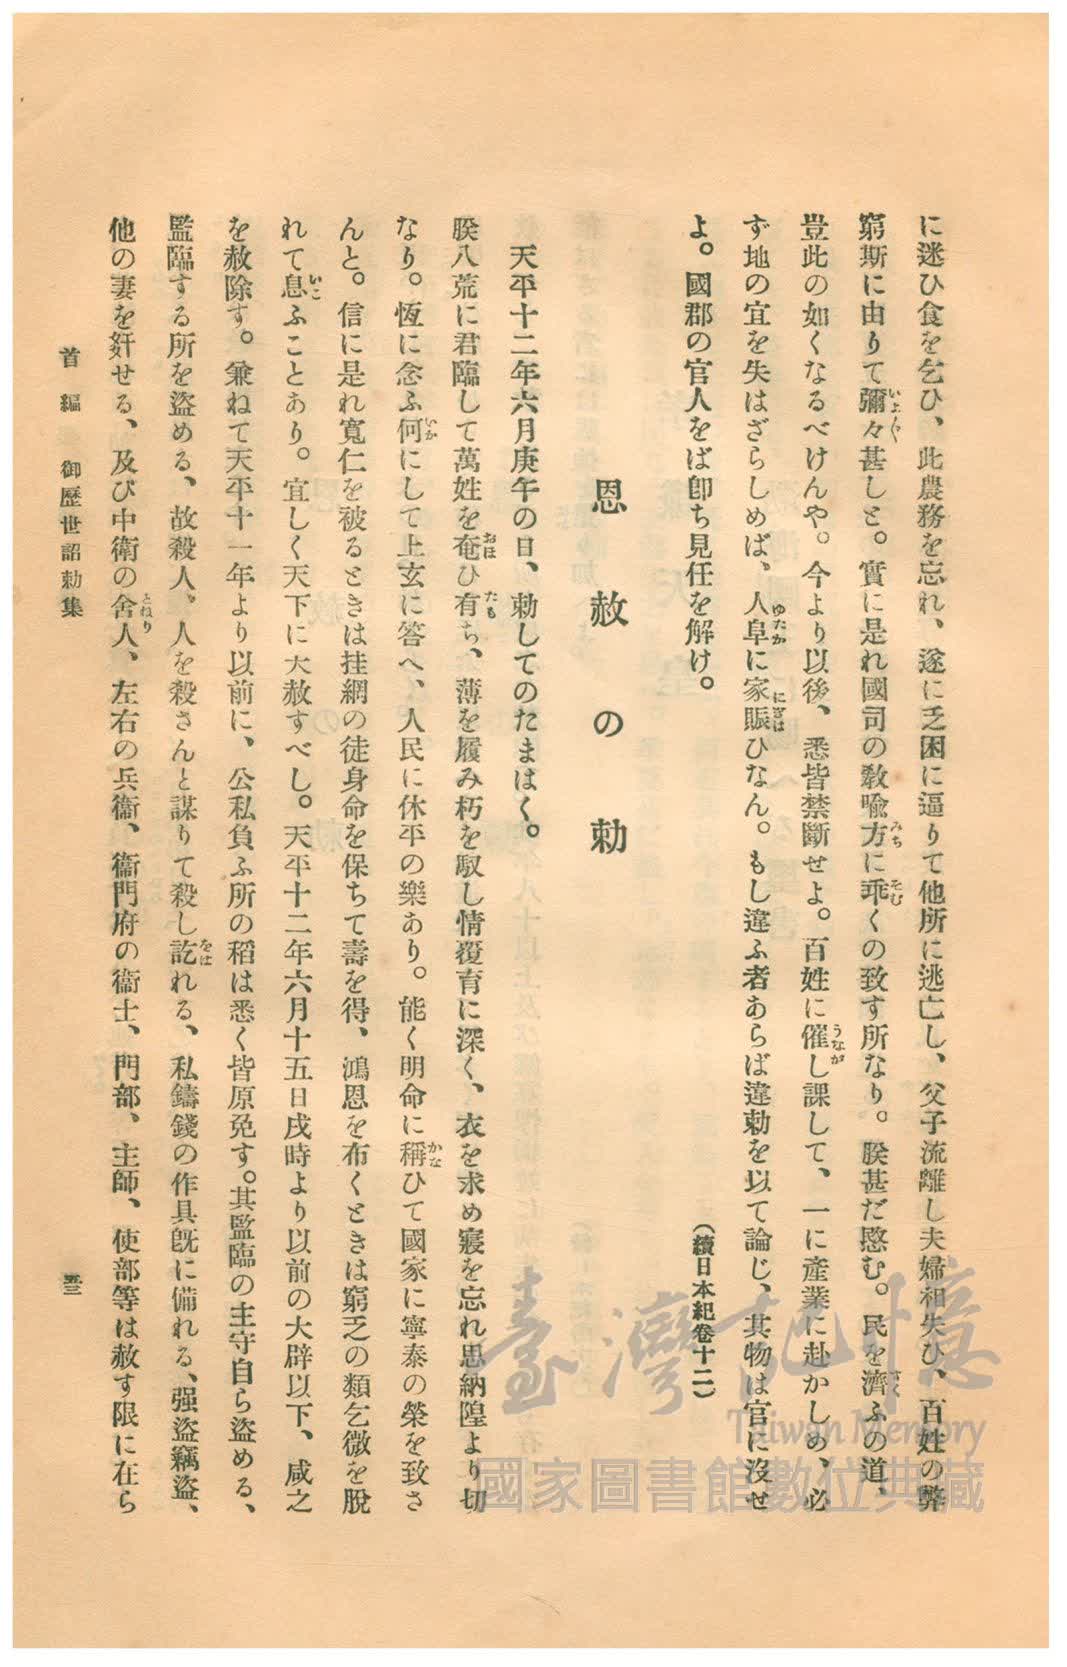 に迷ひ食を乞ひ、此農務を忘れ、遂に乏困に逼りて他所に逃亡し、父子流離し夫婦相失ひ、百姓の弊
窮斯に由りて彌々甚しと。實に是れ國司の敎喩方に乖くの致す所なり。朕甚だ愍む。民を濟ふの道、
豈此の如くなるべけんや。今より以後、悉皆禁斷せよ。百姓に催し課して、一に產業に赴かしめ、必
ず地の宜を失はざらしめば、人阜に家賑ひなん。もし違ふ者あらば違勅を以て論じ、其物は官に沒せ
よ。國郡の官人をば卽ち見任を解け。
(續日本紀卷十二)
恩赦の勅
天平十二年六月庚午の日、勅してのたまはく。
朕八荒に君臨して萬姓を奄ひ有ち、薄を履み朽を馭し情覆育に深く、衣を求め寢を忘れ思納隍より切
なり。恆に念ふ何にして上玄に答へ、人民に休平の樂あり。能く明命に稱ひて國家に寧泰の榮を致さ
んと。信に是れ寬仁を被るときは挂網の徒身命を保ちて壽を得、鴻恩を布くときは窮乏の類乞微を脫
れて息ふことあり。宜しく天下に大赦すべし。天平十二年六月十五日戌時より以前の大辟以下、咸之
を赦除す。兼ねて天平十一年より以前に、公私負ふ所の稻は悉く皆原免す。其監臨の主守自ら盜める、
監臨する所を盜める、故殺人、人を殺さんと謀りて殺し訖れる、私鑄錢の作具旣に備れる、强盜竊盜、
他の妻を奸せる、及び中衞の舍人、左右の兵衞、衞門府の衞士、門部、主師、使部等は赦す限に在ら
首編 御歷世詔勅集
五三
臺灣記憶
Taiwan Memory
國家圖書館數位典藏